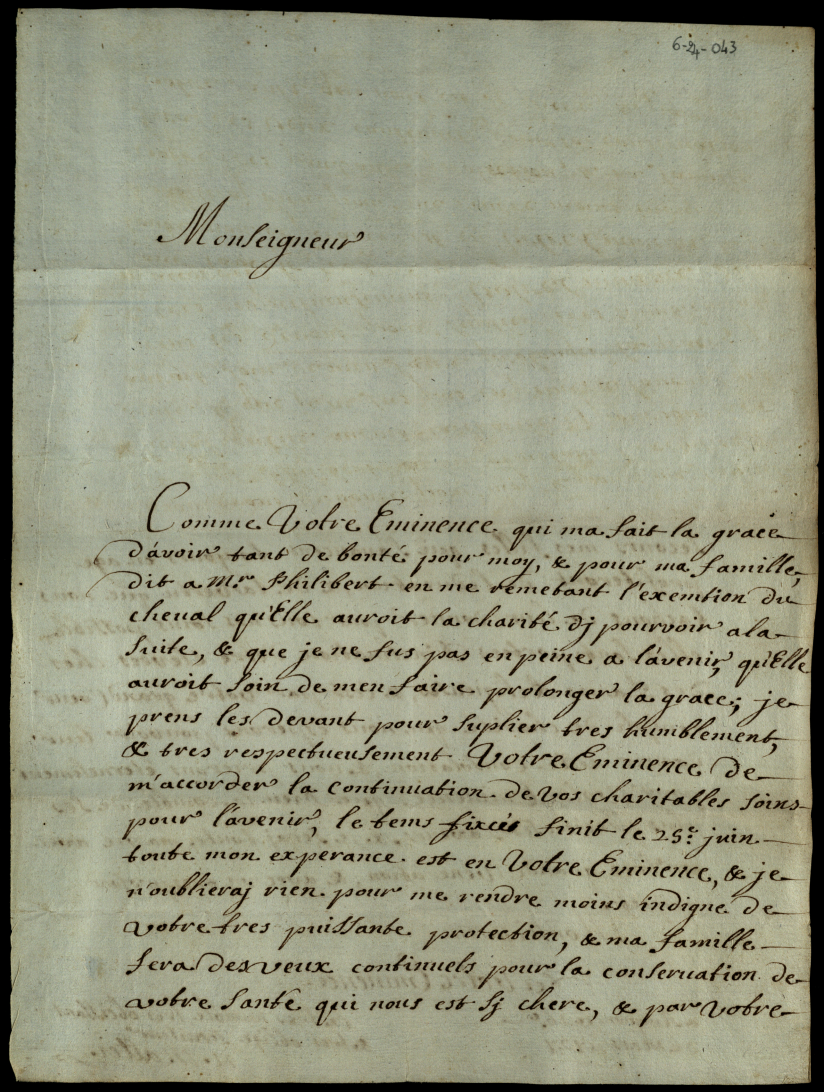 6-24-043
Monseigneur
Comme Votre Eminence qui ma fait la grace
d'avoir tant de bonté pour moy, & pour ma famille,
dit a Mr. Philibert en me remetant l'exemtion du
cheval qu'Elle auroit la charité dj pourvoir a la
suite, & que je ne fus pas en peine a l'avenir, qu'Elle
auroit soin de men faire prolonger la grace; je
prens les devant pour suplier tres humblement,
& tres respectueusement Votre Eminence de
m'accorder la continuation de vos charitables soins
pour l'avenir, le tems fixés finit le 25e. juin
toute mon experance est en Votre Eminence, & je
n'oublieraj rien pour me rendre moins indigne de
votre tres puissante protection, & ma famille
fera des veux continuels pour la conservation de
votre santé qui nous est sj chere, & par votre